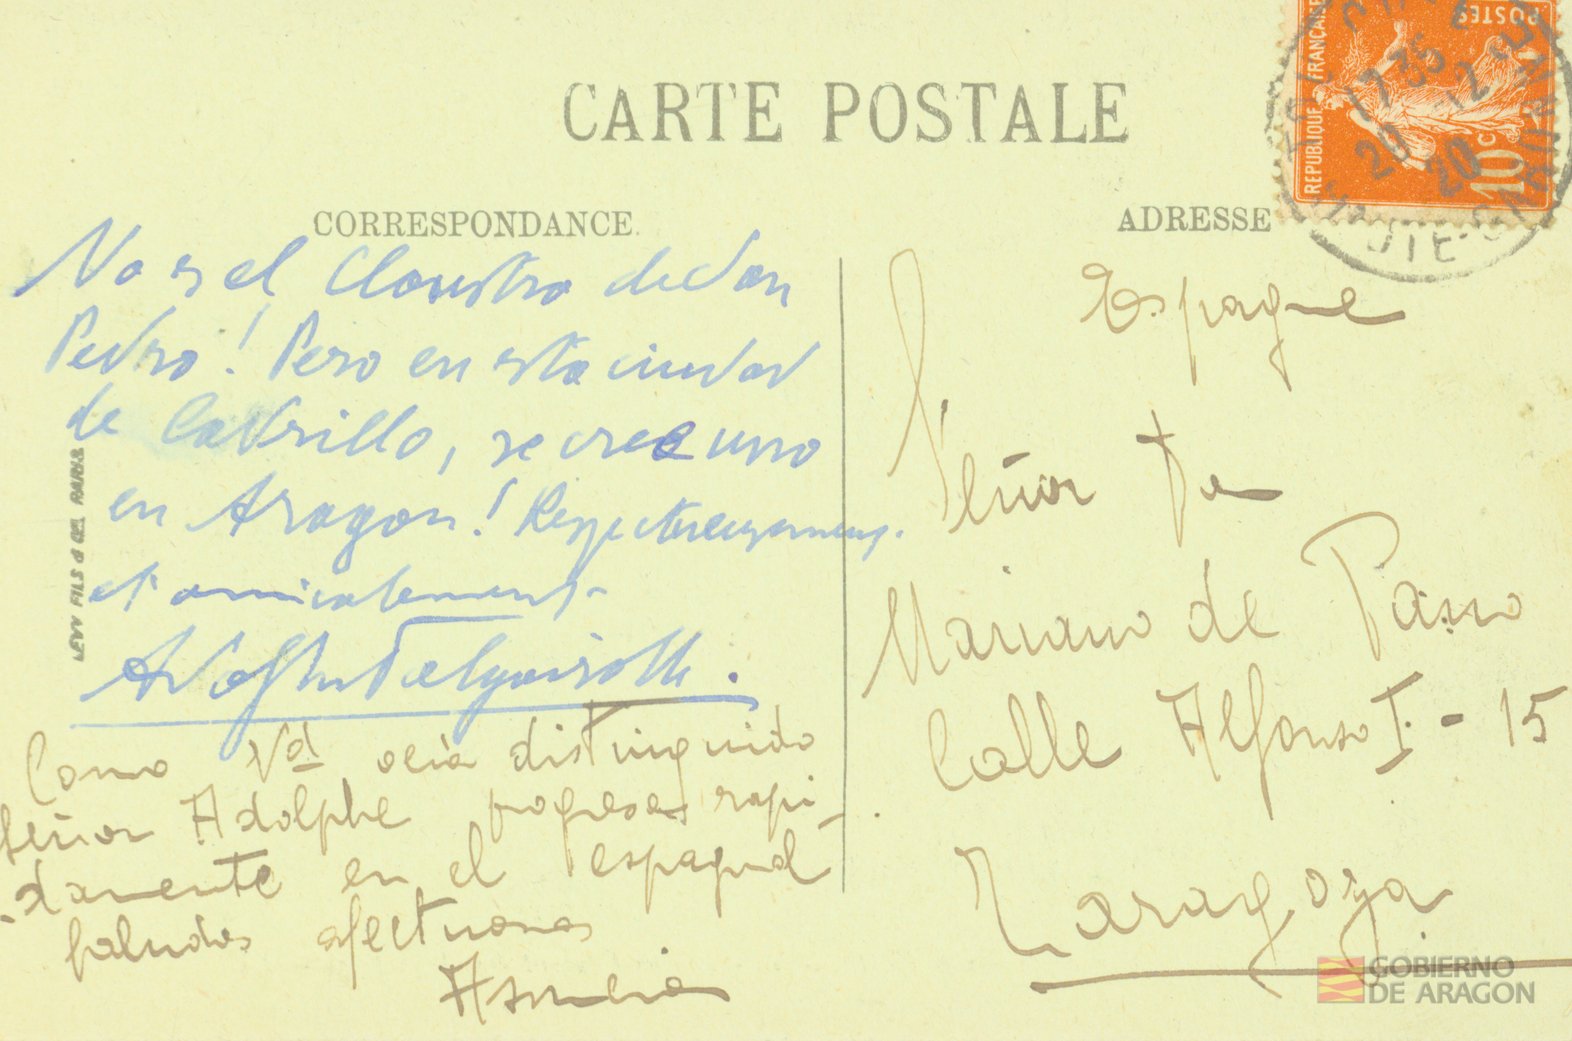 CARTE POSTALE
CORRESPONDANCE
ADRESSE
No es el Claustro de San
Pedro! Pero en esta ciudad
de Ladrillo, se cree uno
en Aragon! Respectueusement
et amicalement
Como Vd. distinguido
Señor Adolphe progresa rapi-
damente en el espagnol
Saludos afectuosos
LEVY FILS & CIE PARIS
Espagne
Señor Dn
Mariano de Pano
Calle Alfonso I. - 15
Zaragoza
REPUBLIQUE FRANÇAISE
POSTES
10c
17 35
20 -12
20
Hte GARONNE
GOBIERNO
DE ARAGON